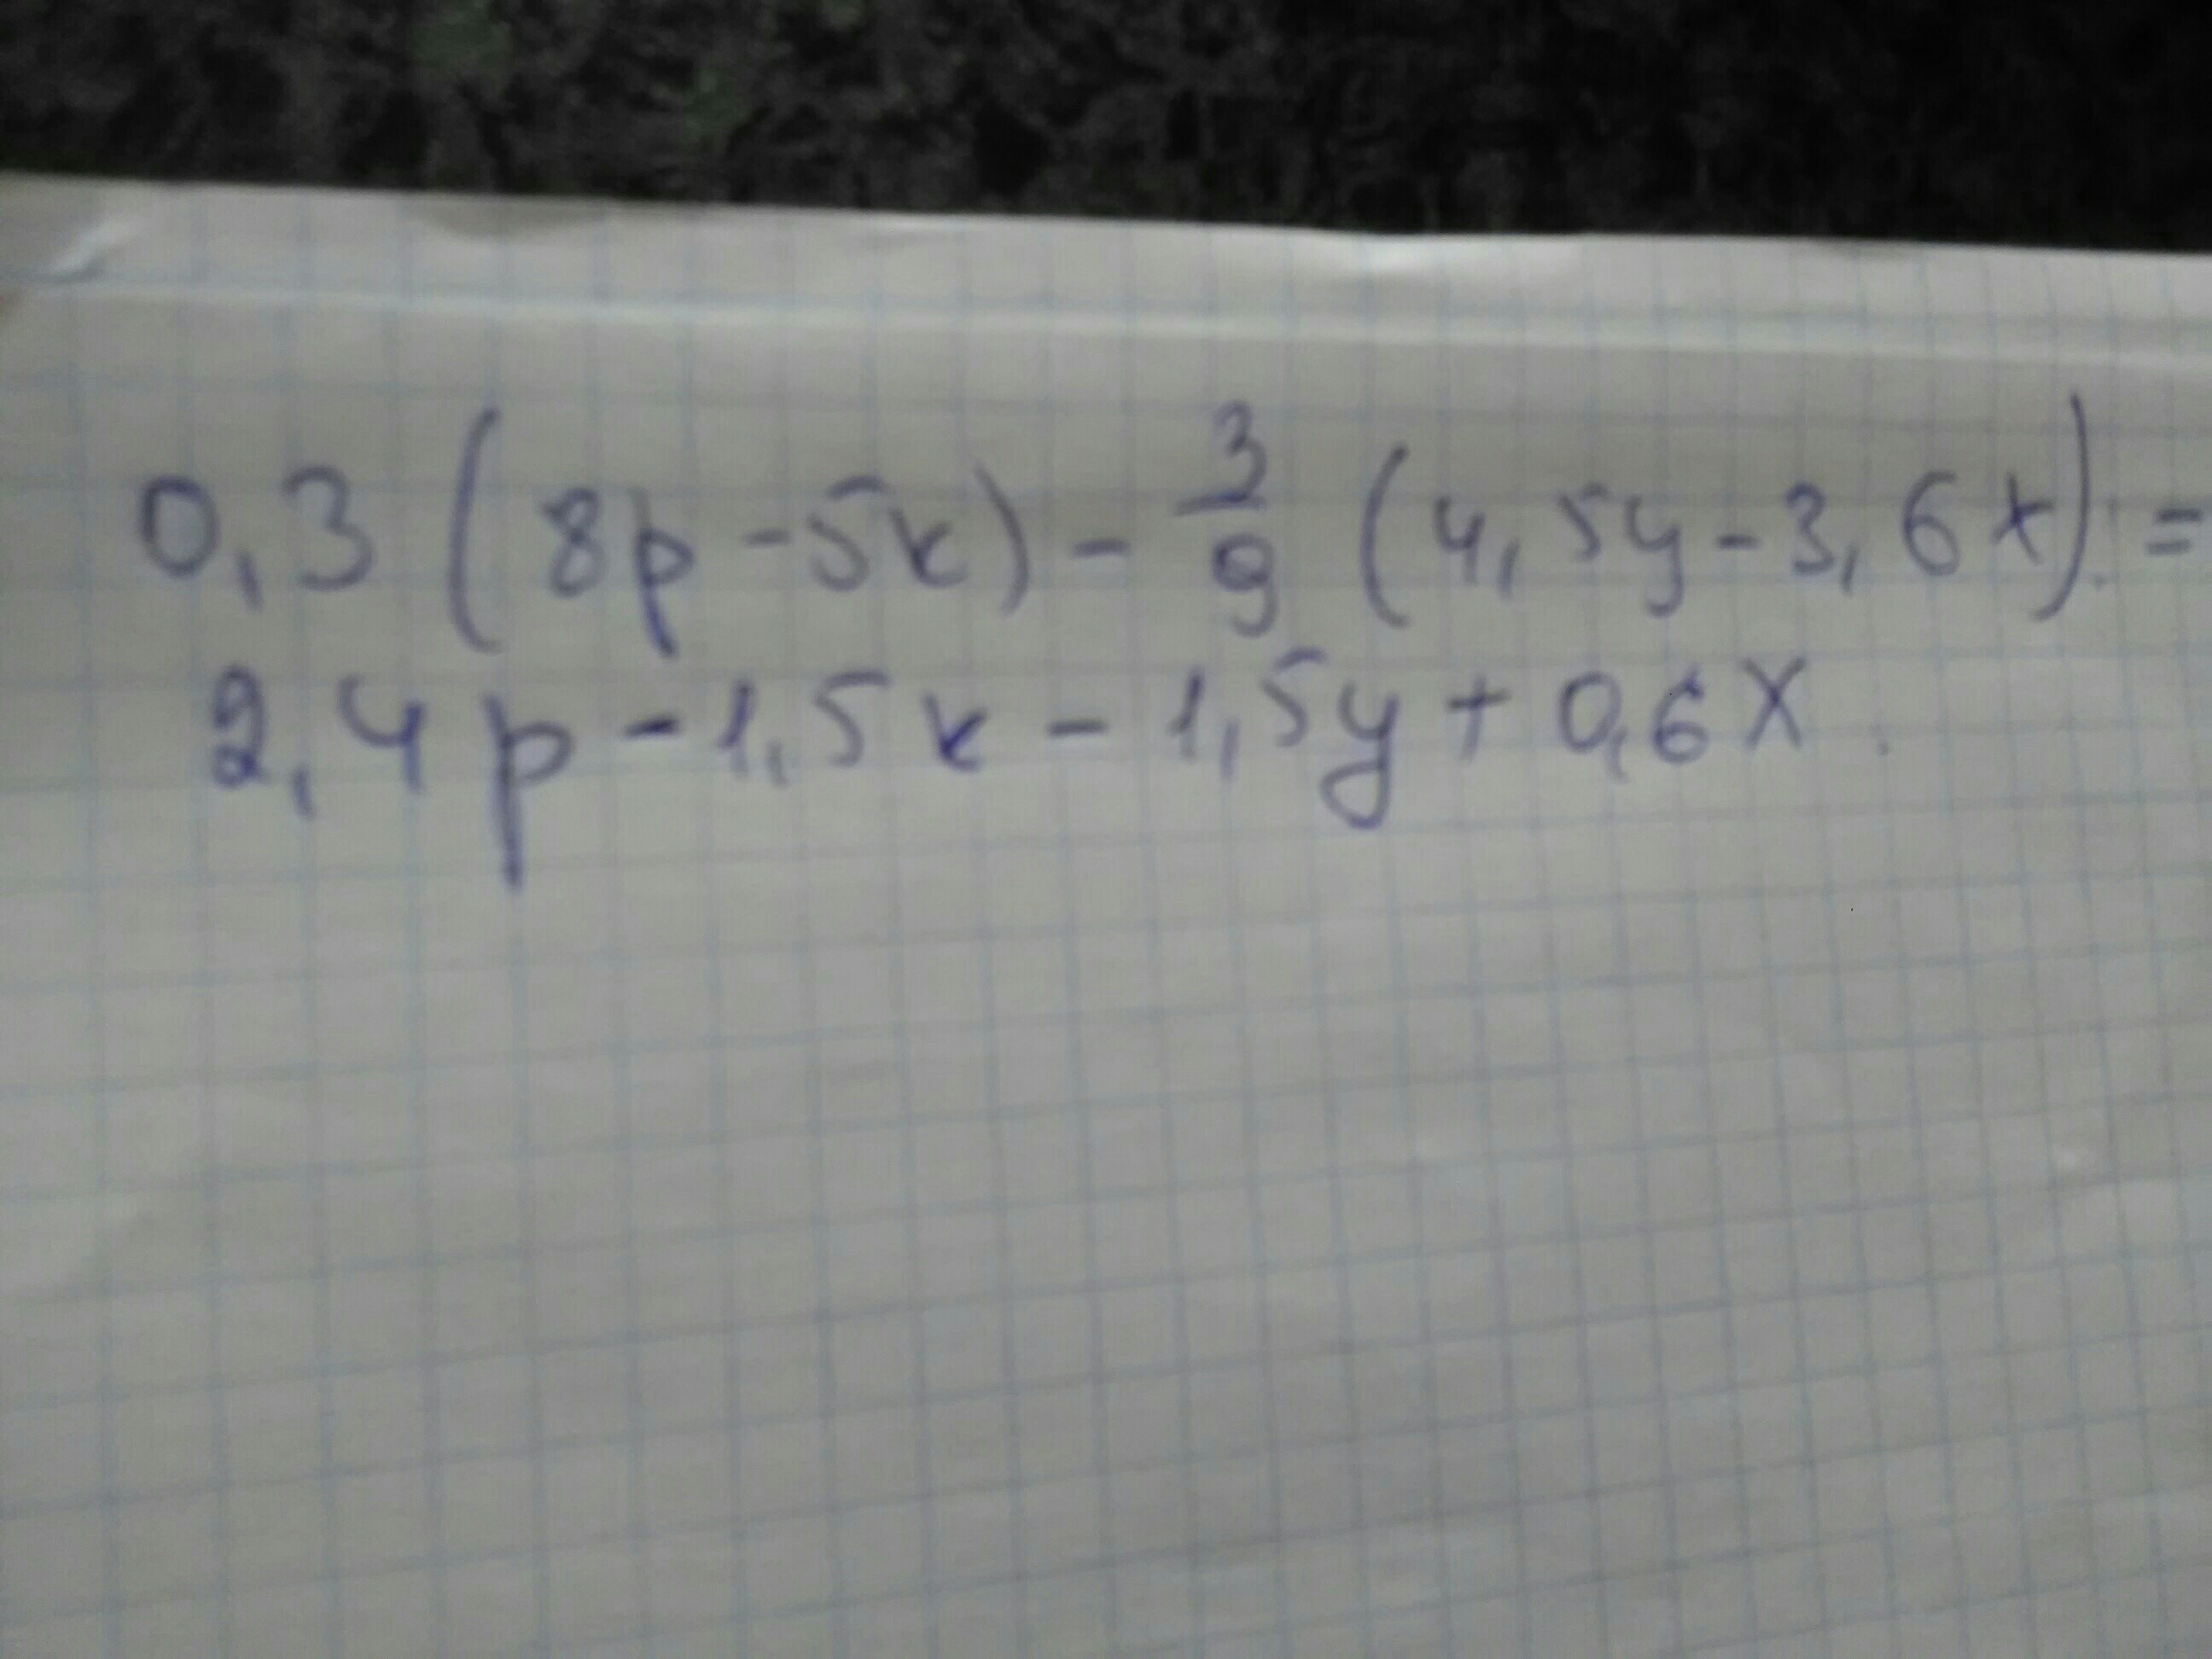 0,3 (8p - 5k) - 3/9 (4,5y - 3,6x) =
2,4p - 1,5k - 1,5y + 0,6x